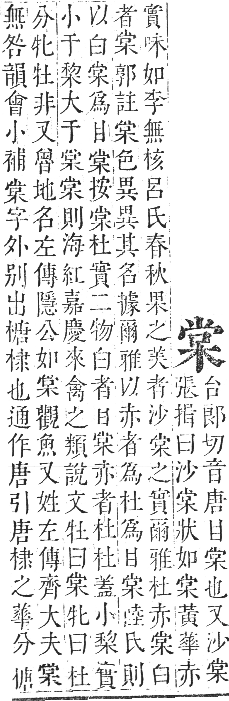 棠
台郎切音唐甘棠也又沙棠
張揖曰沙棠狀如棠黃華赤
實味如李無核呂氏春秋果之美者沙棠之實爾雅杜赤棠白
者棠郭註棠色異異其名據爾雅以赤者為杜為甘棠陸氏則
以白棠為甘棠按棠杜實二物白者甘棠赤者杜杜蓋小棃實
小于棃大于棠棠則海紅嘉慶來禽之類說文牡曰棠牝曰杜
分牝牡非又魯地名左傳隱公如棠觀魚又姓左傳齊大夫棠
無咎韻會小補棠字外別出橠棣也通作唐引唐棣之華分橠